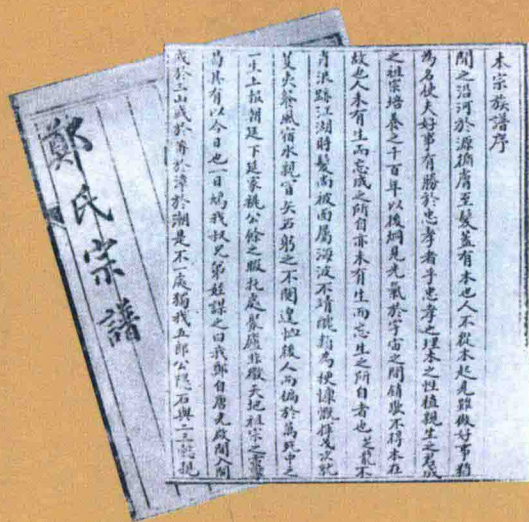 鄭氏宗譜
本宗族譜序
聞之沿河於源循膚至髮蓋有本也人不從本起見雖做好事猶
為名使夫好事有勝於忠孝者乎忠孝也理本之性植親生之長成
之祖宗培養之千百年以後炯見光氣於宇宙之間銷鑠不得本在
故也人未有生而忘成之所自亦未有生而忘生之所自者也芝龍不
肖浪跡江湖時髮尚被面屬海波不靖為梗慷慨揮戈次就
芟夷餐風宿水親冒矢石躬之不閱遑恤後人而偏於萬死中之
一生上報朝廷下延家祧公餘之暇托處蒙廬非徼天地祖宗之靈
曷其有以今日也一日鳩我叔兄弟姪謀之曰我鄭自唐光啟間入閩
或於三山或於莆於漳於潮是不一處獨我五郎公隱石與二三懿親